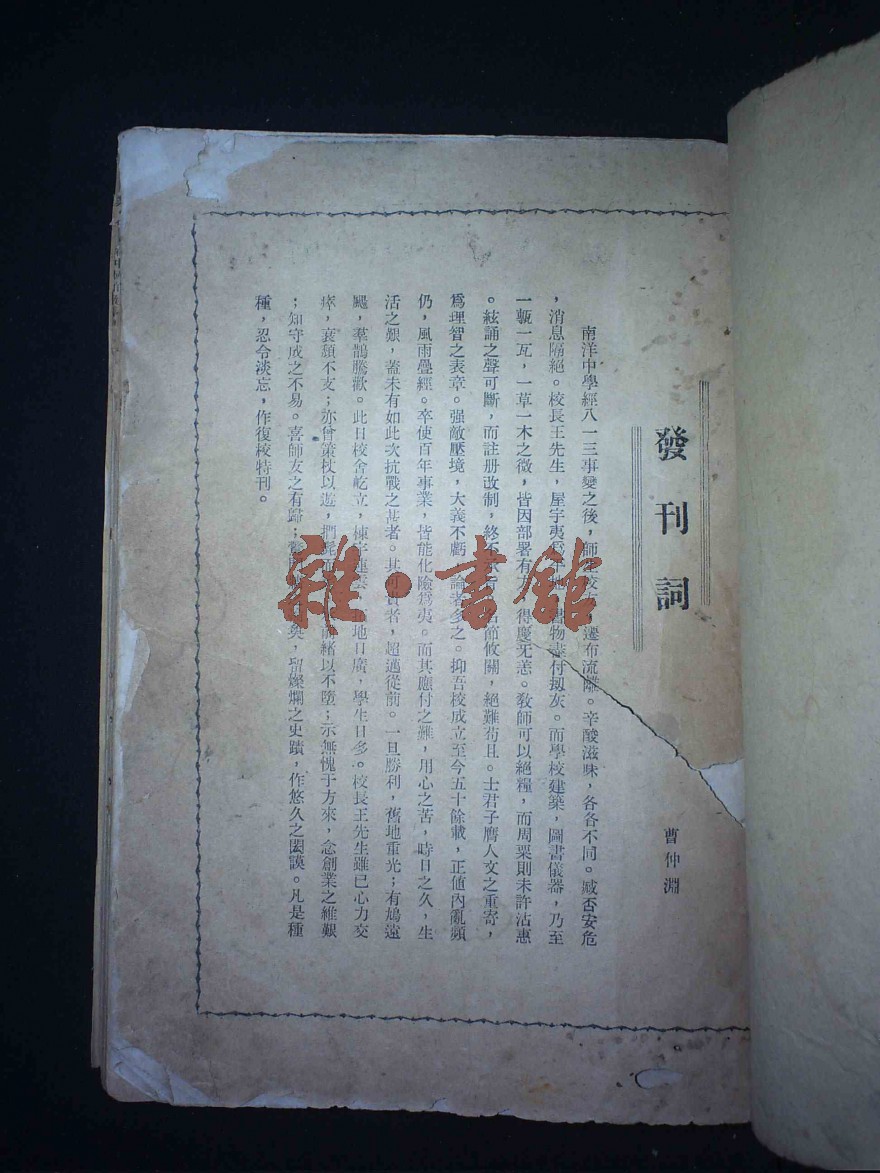 發刊詞
曹仲淵
南洋中學經八一三事變之後，師生校友，遷布流離。辛酸滋味，各各不同。臧否安危
，消息隔絕。校長王先生，屋宇夷爲平地，書物盡付刼灰。而學校建築，圖書儀器，乃至
一甎一瓦，一草一木之微，皆因部署有方，得慶旡恙。敎師可以絕糧，而周粟則未許沾惠
。絃誦之聲可斷，而註册改制，終不 名節攸關，絕難苟且。士君子膺人文之重寄，
爲理智之表章。强敵壓境，大義不虧，論者多之。抑吾校成立至今五十餘載，正値內亂頻
仍，風雨疊經。卒使百年事業，皆能化險爲夷。而其應付之難，用心之苦，時日之久，生
活之艱，蓋未有如此次抗戰之甚者。其可貴者，超邁從前。一旦勝利，舊地重光；有鳩遠
颺，羣鵲騰歡。此日校舍屹立，棟宇連雲， 地日廣，學生日多。校長王先生雖已心力交
瘁，衰顏不支；亦曾策杖以遊，捫 緒以不墮；示無愧于方來，念創業之維艱
；知守成之不易。喜師友之有歸； 矣，留燦爛之史蹟，作悠久之閎謨。凡是種
種，忍令淡忘，作復校特刊。
雜·書館